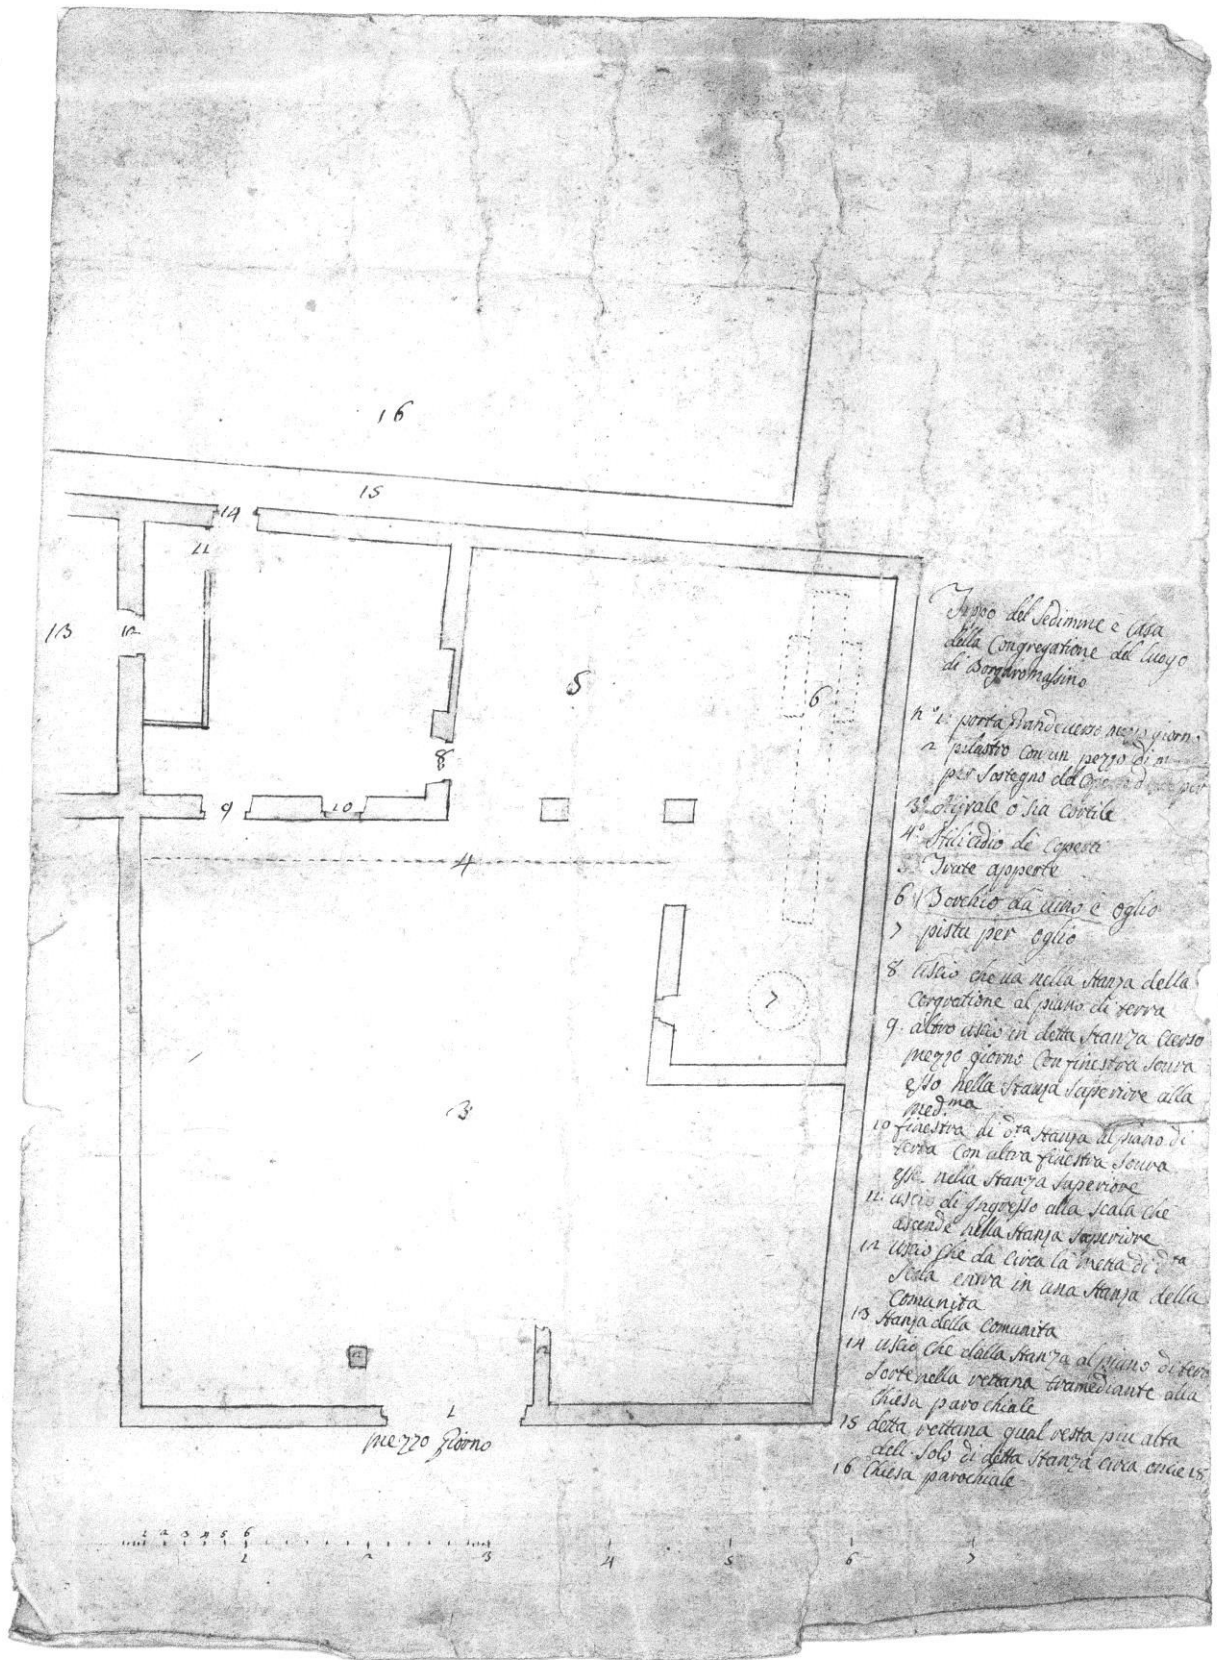 16
15
14
11
13
12
5
6
8
9
10
4
7
3
2
2
1
mezzo Giorno
1 2 3 4 5 6
1 2 3 4 5 6 7
del Sedimme è Casa
della Congregatione del luogo
di Borgaromassino
n.° 1. porta grande verso mezo giorn.
2 pilastro con un pezzo di
per sostegno del
3.° ò sia cortile
4.° Stilicidio de coperti
5.° Trate apperte
6 Torchio da uino è oglio
7 pista per oglio
8 Uscio che uà nella stanza della
al piano di terra
9. altro uscio in detta stanza uerso
mezzo giorno con finestra soura
esso nella stanza superiore alla
med.ma
10 finestra di d.ta stanza al piano di
terra con altra finestra soura
essa nella stanza superiore
11. uscio di Ingresso alla scala che
ascende nella stanza superiore
12 uscio che da circa la metta di d.ta
scala entra in una stanza della
Comunità
13 stanza della Comunita
14 uscio che dalla stanza al piano di terra
sorte nella rittana tramediante alla
Chiesa parochiale
15 detta rittana qual resta piu alta
dell. solo di detta stanza circa oncie 18
16 Chiesa parochiale